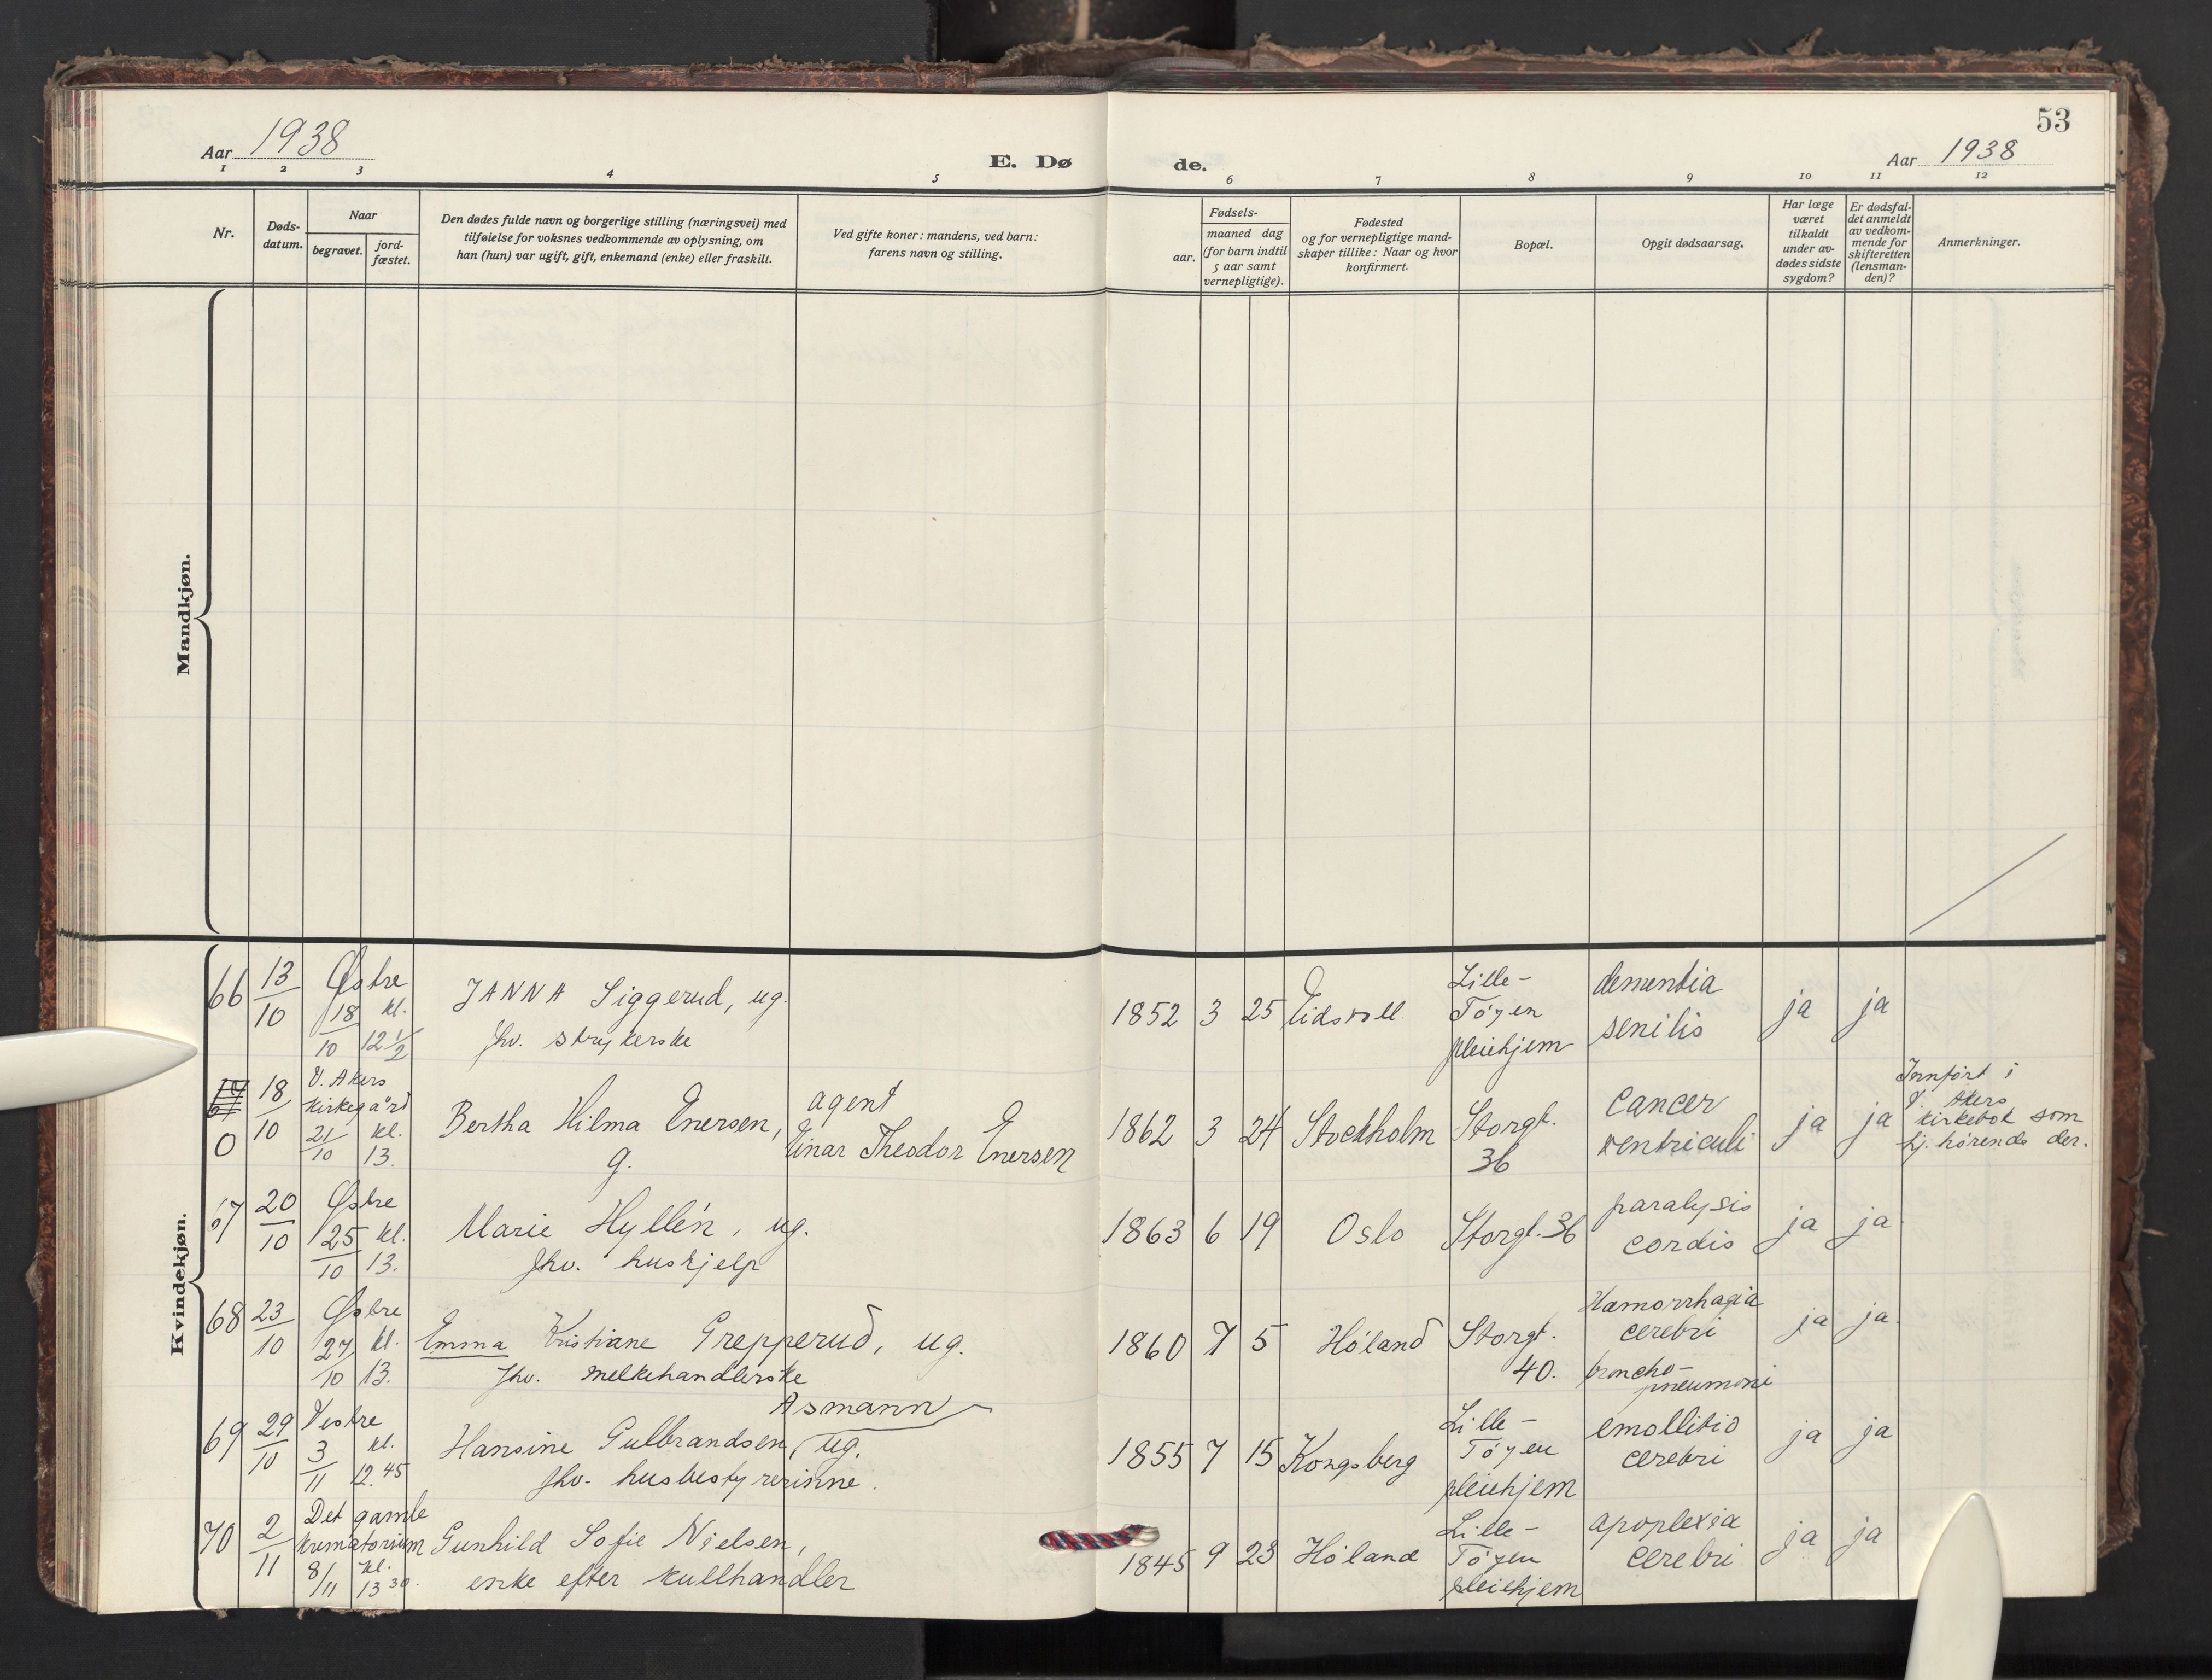 53
Aar 1938
E. Dø de.
Aar 1938
1 2 3 4 5 6 7 8 9 10 11 12
Nr.
Døds-
datum.
Naar
begravet.
jord-
fæstet.
Den dødes fulde navn og borgerlige stilling (næringsvei) med
tilføielse for voksnes vedkommende av oplysning, om
han (hun) var ugift, gift, enkemand (enke) eller fraskilt.
Ved gifte koner: mandens, ved barn:
farens navn og stilling.
Fødsels-
aar.
maaned dag
(for barn indtil
5 aar samt
vernepligtige).
Fødested
og for vernepligtige mand-
skaper tillike: Naar og hvor
konfirmert.
Bopæl.
Opgit dødsaarsag.
Har læge
været
tilkaldt
under av-
dødes sidste
sygdom?
Er dødsfal-
det anmeldt
av vedkom-
mende for
skifteretten
(lensman-
den)?
Anmerkninger.
Mandkjøn.
Kvindekjøn.
66
13
10
Østre
18 kl.
10 12 1/2
JANNA Siggerud, ug.
fhv. strykerske
1852 3 25 Eidsvoll
Lille-
Tøyen
pleiehjem
dementia
senilis
ja ja
0
18
10
V. Akers
kirkegård
21 kl.
10 13.
Bertha Hilma Enersen,
g.
agent
Einar Theodor Enersen
1862 3 24 Stockholm
Storgt.
36
cancer
ventriculi
ja ja
Innført i
V. Akers
kirkebok som
hj. hørende der.
67
20
10
Østre
25 kl.
10 13.
Marie Hyllén, ug.
fhv. hushjelp
1863 6 19 Oslo
Storgt. 36
paralysis
cordis
ja ja
68
23
10
Østre
27 kl.
10 13.
Emma Kristiane Grepperud, ug.
fhv. melkehandlerske
1860 7 5 Høland
Storgt.
40.
Hæmorrhagia
cerebri
broncho-
pneumoni
ja ja
69
29
10
Vestre
3 kl.
11 12.45
Asmann
Hansine Gulbrandsen, ug.
fhv. husbestyrerinne.
1855 7 15 Kongsberg
Lille-
Tøyen
pleiehjem
emollitio
cerebri
ja ja
70
2
11
Det gamle
krematorium
8/11 kl.
13 30.
Gunhild Sofie Nielsen,
enke efter kullhandler
1845 9 23 Høland
Lille-
Tøyen
pleiehjem
apoplexia
cerebri
ja ja